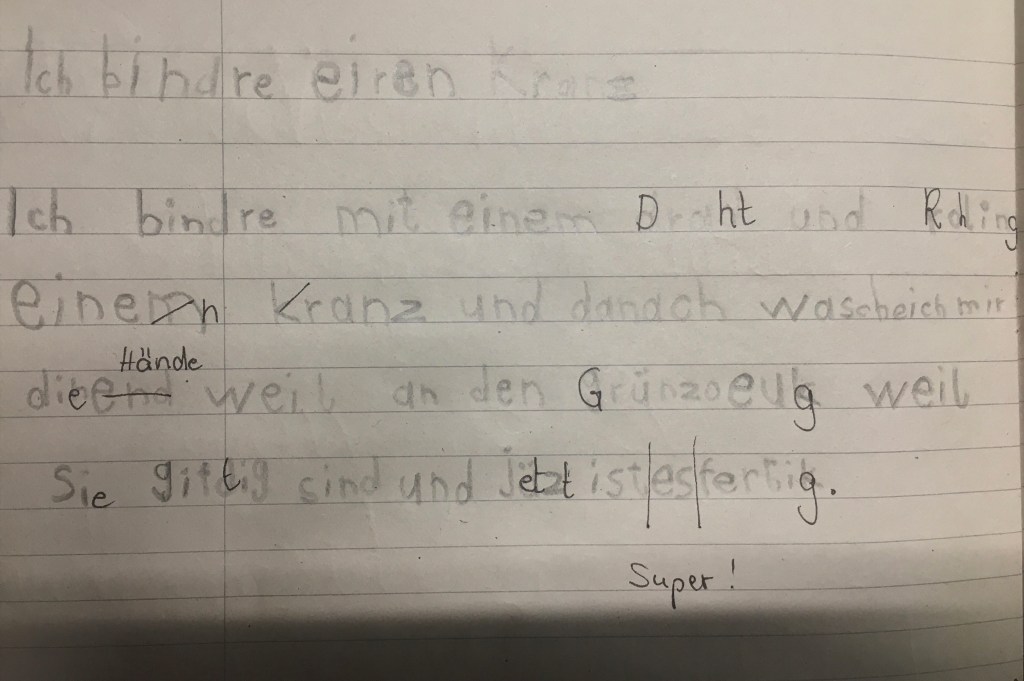 Ich bindre einen Kranz
Ich bindre mit einem Draht und Rohling
einemn Kranz und danach wascheich mir
Hände
dieend weil an den Grünzoeug weil
Sie giftig sind und jetzt ist|es|fertig.
Super!